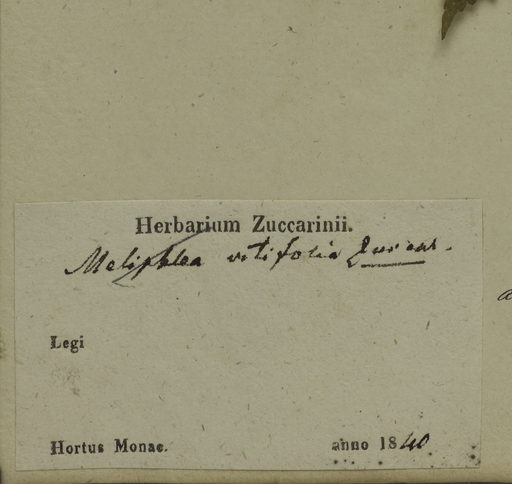 Herbarium Zuccarinii.
Meliphlea vitifolia Zuccar.
Legi
Hortus Monac.
anno 1840